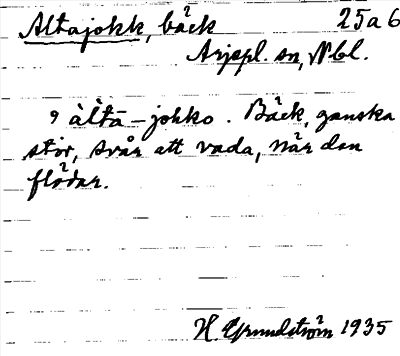 Altajokk, bäck 25a6
Arjepl. sn, Nbl.
àltā-johko. Bäck, ganska
stor, svår att vada, när den
flödar.
H. Grundström 1935